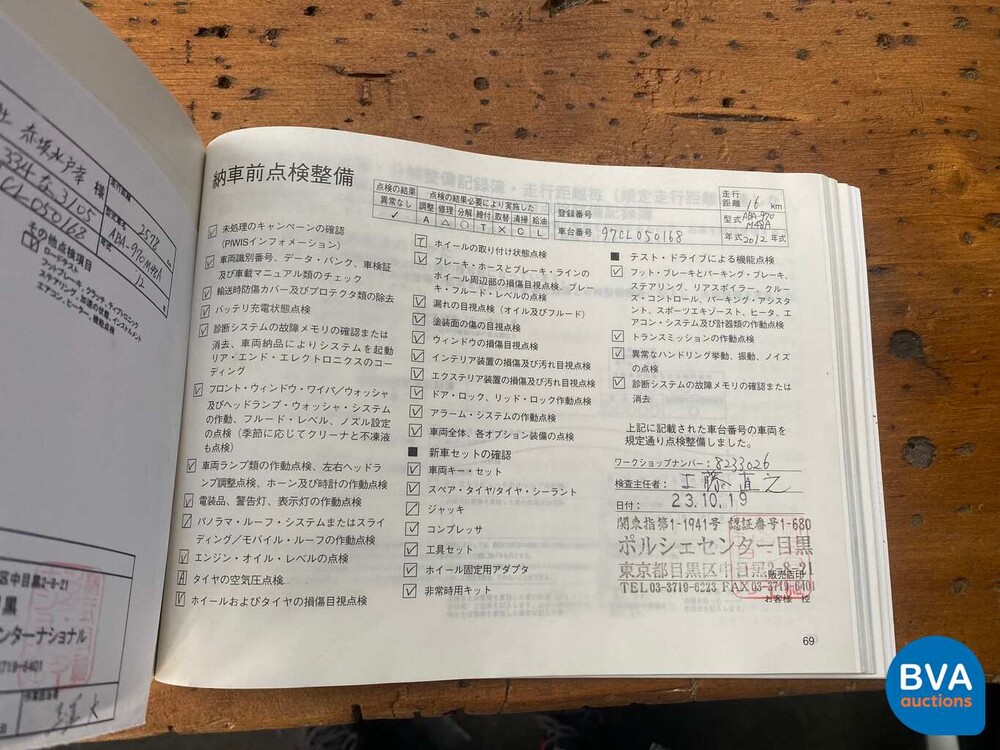 赤坂水戸幸 様
334 な 3105
CL050168
ABA-970M48A
2578
12
その他点検項目
ロードテスト
フットブレーキ・クラッチ・ティプトロニック
ステアリング、加速の状態、インストルメント
エアコン、ヒーター、機能点検
区中目黒2-8-21
黒
ンターナショナル
3719-6401
納車前点検整備
点検の結果 点検の結果必要により実施した
異常なし 調整 修理 分解 締付 取替 清掃 給油
✓ A △ ○ T × C L
登録番号
車台番号 97CL050168
走行距離 16 km
型式 ABA-970 M48A
年式 2012 年式
未処理のキャンペーンの確認
(PIWISインフォメーション)
車両識別番号、データ・バンク、車検証
及び車載マニュアル類のチェック
輸送時防傷カバー及びプロテクタ類の除去
バッテリ充電状態点検
診断システムの故障メモリの確認または
消去、車両納品によりシステムを起動
リア・エンド・エレクトロニクスのコー
ディング
フロント・ウィンドウ・ワイパ/ウォッシャ
及びヘッドランプ・ウォッシャ・システム
の作動、フルード・レベル、ノズル設定
の点検(季節に応じてクリーナと不凍液
も点検)
車両ランプ類の作動点検、左右ヘッドラ
ンプ調整点検、ホーン及び時計の作動点検
電装品、警告灯、表示灯の作動点検
パノラマ・ルーフ・システムまたはスライ
ディング/モバイル・ルーフの作動点検
エンジン・オイル・レベルの点検
A タイヤの空気圧点検
ホイールおよびタイヤの損傷目視点検
T ホイールの取り付け状態点検
ブレーキ・ホースとブレーキ・ラインの
ホイール周辺部の損傷目視点検、ブレー
キ・フルード・レベルの点検
漏れの目視点検(オイル及びフルード)
塗装面の傷の目視点検
ウィンドウの損傷目視点検
インテリア装置の損傷及び汚れ目視点検
エクステリア装置の損傷及び汚れ目視点検
ドア・ロック、リッド・ロック作動点検
アラーム・システムの作動点検
車両全体、各オプション装備の点検
■ 新車セットの確認
車両キー・セット
スペア・タイヤ/タイヤ・シーラント
ジャッキ
コンプレッサ
工具セット
ホイール固定用アダプタ
非常時用キット
■ テスト・ドライブによる機能点検
フット・ブレーキとパーキング・ブレーキ、
ステアリング、リアスポイラー、クルー
ズ・コントロール、パーキング・アシスタ
ント、スポーツエキゾースト、ヒータ、エ
アコン・システム及び計器類の作動点検
トランスミッションの作動点検
異常なハンドリング挙動、振動、ノイズ
の点検
診断システムの故障メモリの確認または
消去
上記に記載された車台番号の車両を
規定通り点検整備しました。
ワークショップナンバー:8233026
検査主任者: 工藤直之
日付: 23.10.19
関東指第1-1941号 認証番号1-680
ポルシェセンター目黒
東京都目黒区中目黒2-8-21
販売店印
TEL03-3719-6223 FAX03-3719-6401
お客様 控
69
BVA
auctions